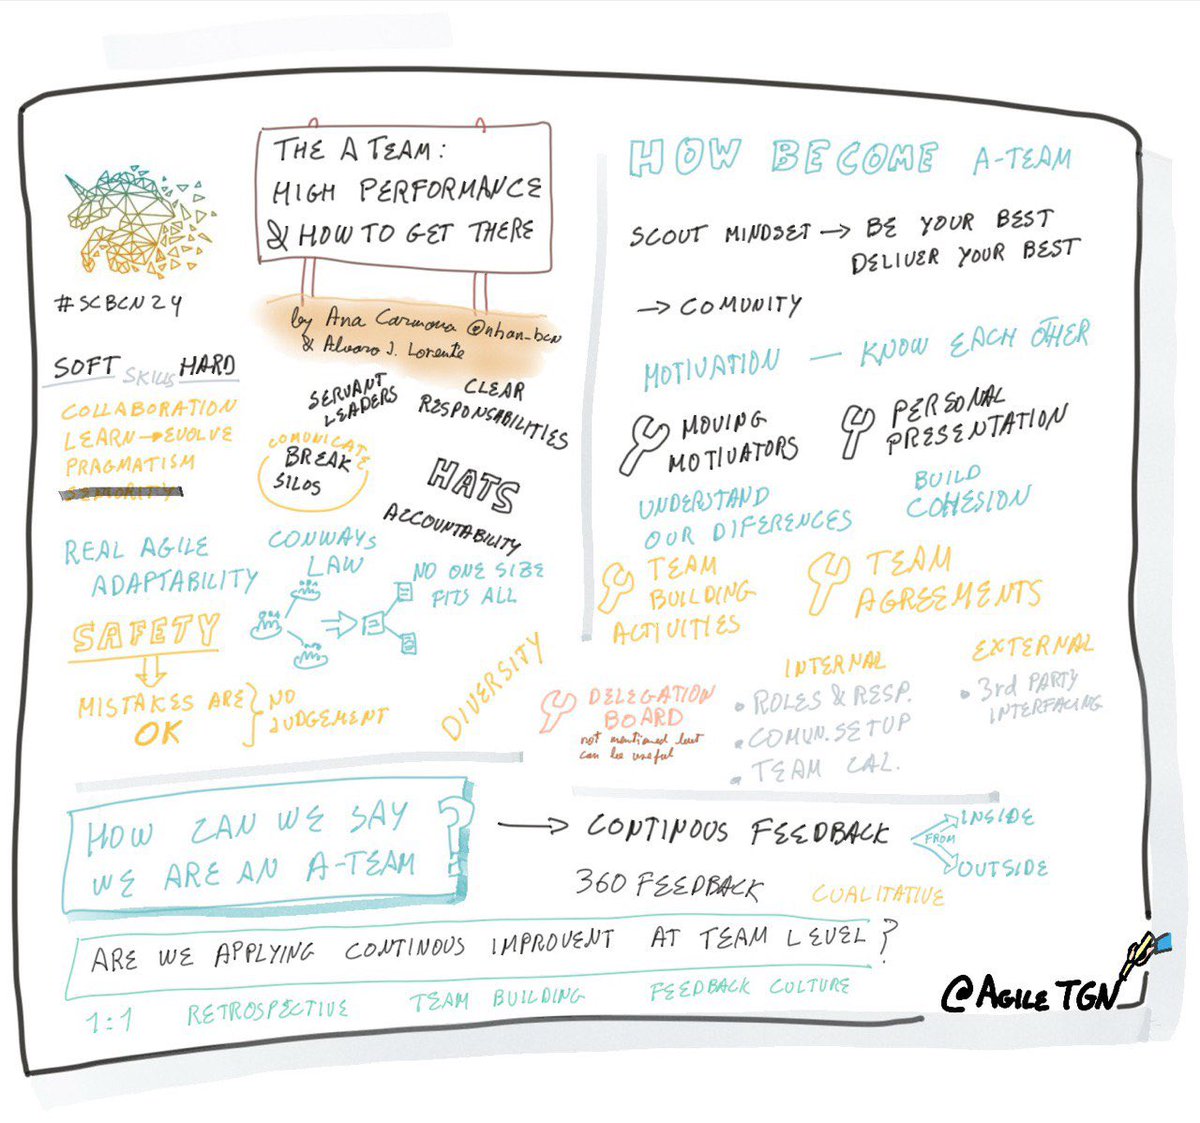 THE A TEAM:
HIGH PERFORMANCE
& HOW TO GET THERE
by Ana Carmona @nhan_bcn
& Alvaro J. Lorente
#SCBCN24
SOFT SKILLS HARD
COLLABORATION
LEARN → EVOLVE
PRAGMATISM
SENIORITY
SERVANT
LEADERS
CLEAR
RESPONSABILITIES
COMUNICATE
BREAK
SILOS
HATS
ACCOUNTABILITY
REAL AGILE
ADAPTABILITY
CONWAYS
LAW
NO ONE SIZE
FITS ALL
SAFETY
MISTAKES ARE
OK
NO
JUDGEMENT
DIVERSITY
HOW BECOME A-TEAM
SCOUT MINDSET → BE YOUR BEST
DELIVER YOUR BEST
→ COMUNITY
MOTIVATION — KNOW EACH OTHER
MOVING
MOTIVATORS
PERSONAL
PRESENTATION
UNDERSTAND
OUR DIFERENCES
BUILD
COHESION
TEAM
BUILDING
ACTIVITIES
TEAM
AGREEMENTS
DELEGATION
BOARD
not mentioned but
can be useful
INTERNAL
• ROLES & RESP.
• COMUN. SETUP
• TEAM CAL.
EXTERNAL
• 3rd PARTY
INTERFACING
HOW CAN WE SAY
WE ARE AN A-TEAM ?
→ CONTINOUS FEEDBACK
FROM
INSIDE
OUTSIDE
360 FEEDBACK CUALITATIVE
ARE WE APPLYING CONTINOUS IMPROVENT AT TEAM LEVEL?
1:1 RETROSPECTIVE TEAM BUILDING FEEDBACK CULTURE
@AGILE TGN